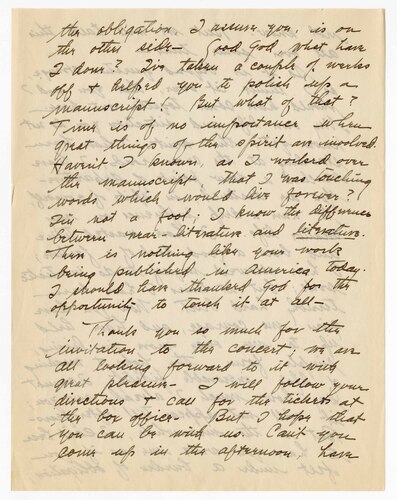 the obligation, I assure you, is on
the other side— Good God, what have
I done? I've taken a couple of weeks
off & helped you to polish up a
manuscript! But what of that?
Time is of no importance when
great things of the spirit are involved.
Haven't I known, as I worked over
the manuscript, that I was touching
words which would live forever?
I'm not a fool; I know the difference
between near-literature and literature.
There is nothing like your work
being published in America today.
I should have thanked God for the
opportunity to touch it at all—
Thank you so much for the
invitation to the concert; we are
all looking forward to it with
great pleasure— I will follow your
directions & call for the tickets at
the box office— But I hope that
you can be with us. Can't you
come up in the afternoon, have